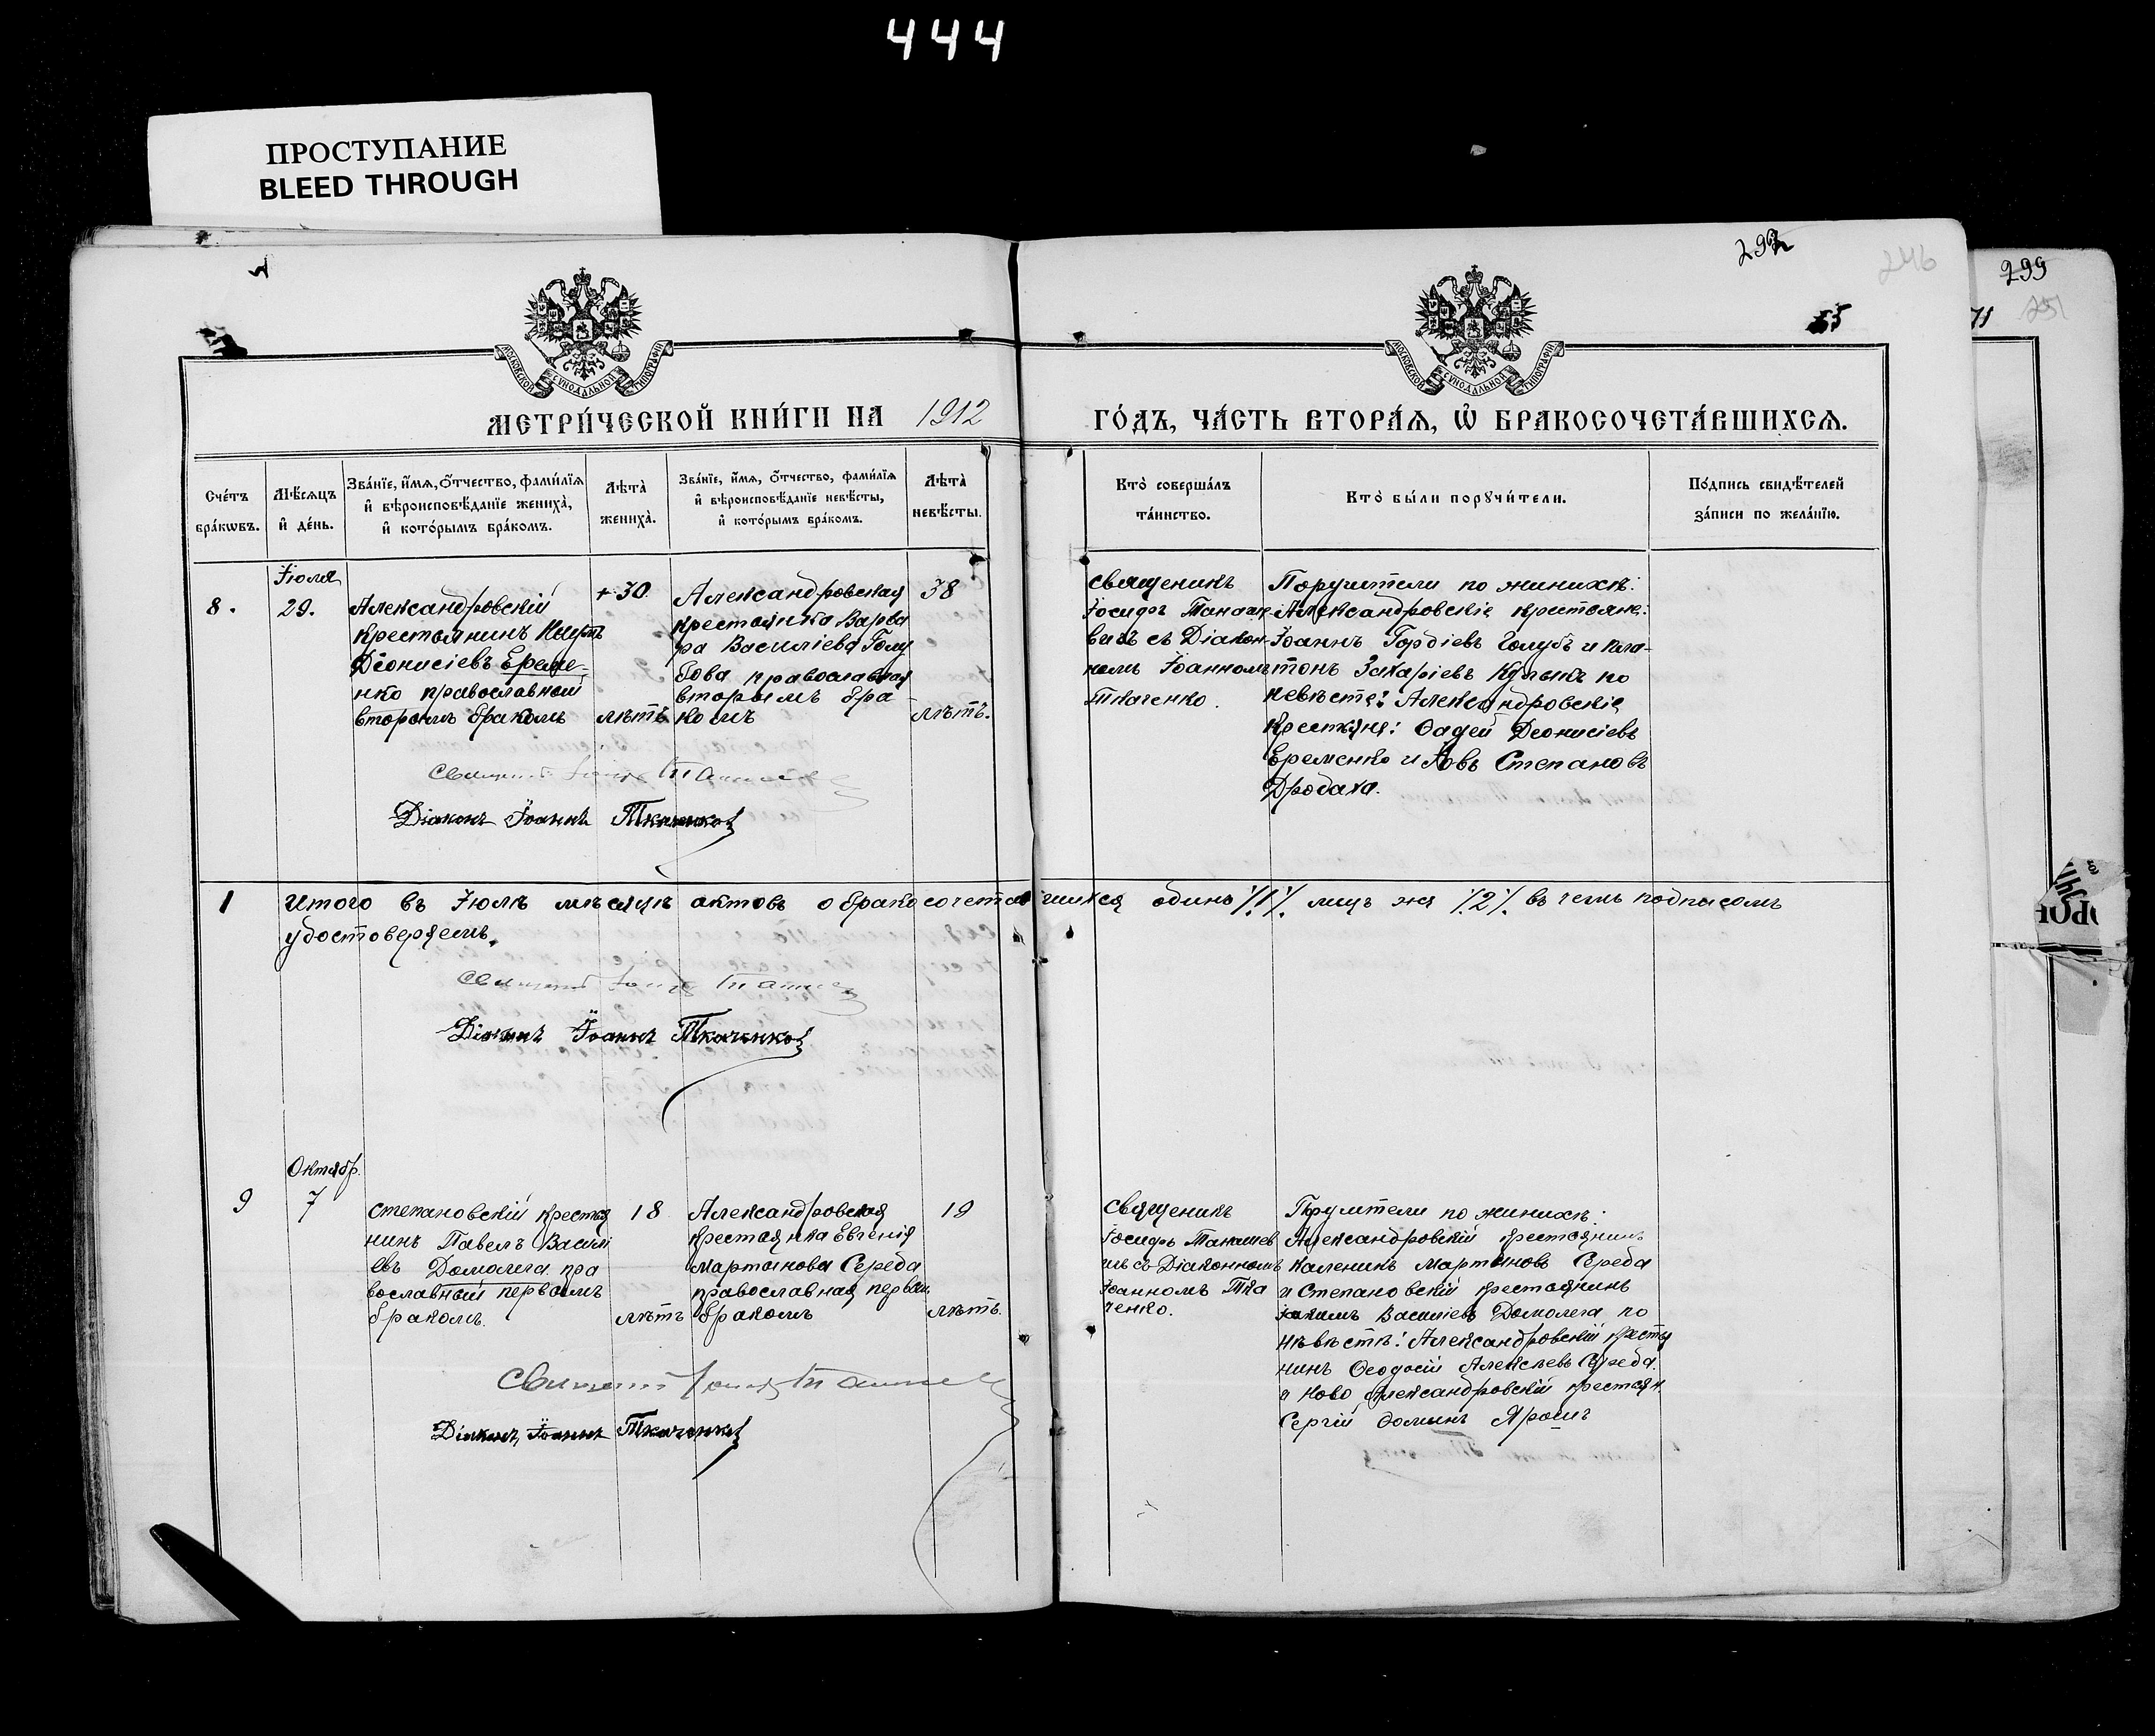 444
ПРОСТУПАНИЕ
BLEED THROUGH
299
МОСКОВСКОЙ СѴНОДАЛЬНОЙ ТИПОГРАФІИ
МОСКОВСКОЙ СѴНОДАЛЬНОЙ ТИПОГРАФІИ
МЕТРИ́ЧЕСКОЙ КНИ́ГИ НА 1912
ГО́ДЪ, ЧА́СТЬ ВТОРА́Ѧ, Ѡ҆ БРАКОСОЧЕТА́ВШИХСѦ.
Сче́тъ бра́кѡвъ.
Мѣ́сѧцъ и҆ де́нь.
Зва́нїе, и҆́мѧ, ѻ҆́тчество, фами́лїѧ и҆ вѣроисповѣ́данїе жениха̀, и҆ кото́рымъ бра́комъ.
Лѣта̀ жениха̀.
Зва́нїе, и҆́мѧ, ѻ҆́тчество, фами́лїѧ и҆ вѣроисповѣ́данїе невѣ́сты, и҆ кото́рымъ бра́комъ.
Лѣта̀ невѣ́сты.
Кто̀ соверша́лъ та́инство.
Кто̀ бы́ли порꙋчи́тели.
По́дпись свидѣ́телей за́писи по жела́нїю.
8.
Іюля
29.
Александровскій
крестьянинъ
Діонисіевъ Ереме-
нко православный
вторымъ бракомъ
30
лѣтъ
Александровская
крестьянка Варва
ра Василіева Голу
бова православная
вторымъ бра
комъ
38
лѣтъ.
священикъ
Іосифъ Танаше-
вичъ съ Діакон-
номъ Іоанномъ
Ткаченко.
Поручители по жинихѣ:
Александровскіе крестьяне:
Іоаннъ Гордіевъ Голубъ и Пла-
тонъ Захаріевъ по
невѣсте: Александровскіе
крестьяне: Ѳадей Деонисіевъ
Еременко и Іовъ Степановъ
Дробаха.
Діаконъ Іоаннъ Ткаченко
1 Итого въ Іюлѣ мѣсяцѣ актовъ о бракосочетавшихся одинъ /1/ лицъ же /2/ въ чемъ подписомъ
удостоверяемъ.
Діаконъ Іоаннъ Ткаченко
9
Октябр.
7
степановскій крестья
нинъ Павелъ Василі
евъ Домолега пра
вославный первымъ
бракомъ.
18
лѣтъ
Александровская
крестьянка Евгенія
Мартынова Середа
православная первым
бракомъ
19
лѣтъ.
священикъ
Іосифъ Танашев
ичъ съ Діаконномъ
Іоанномъ Тка
ченко.
Пручители по жинихѣ:
Александровскій крестьянинъ
Каленикъ Мартыновъ Середа
и Степановскій крестьянинъ
Іоакимъ Василіевъ Домолега по
невѣстѣ: Александровскій крестья
нинъ Ѳеодосій Алексѣевъ Середа.
и Ново Александровскій крестьян.
Сергій Ѳоминъ Ярошъ
Діаконъ, Іоаннъ Ткаченко